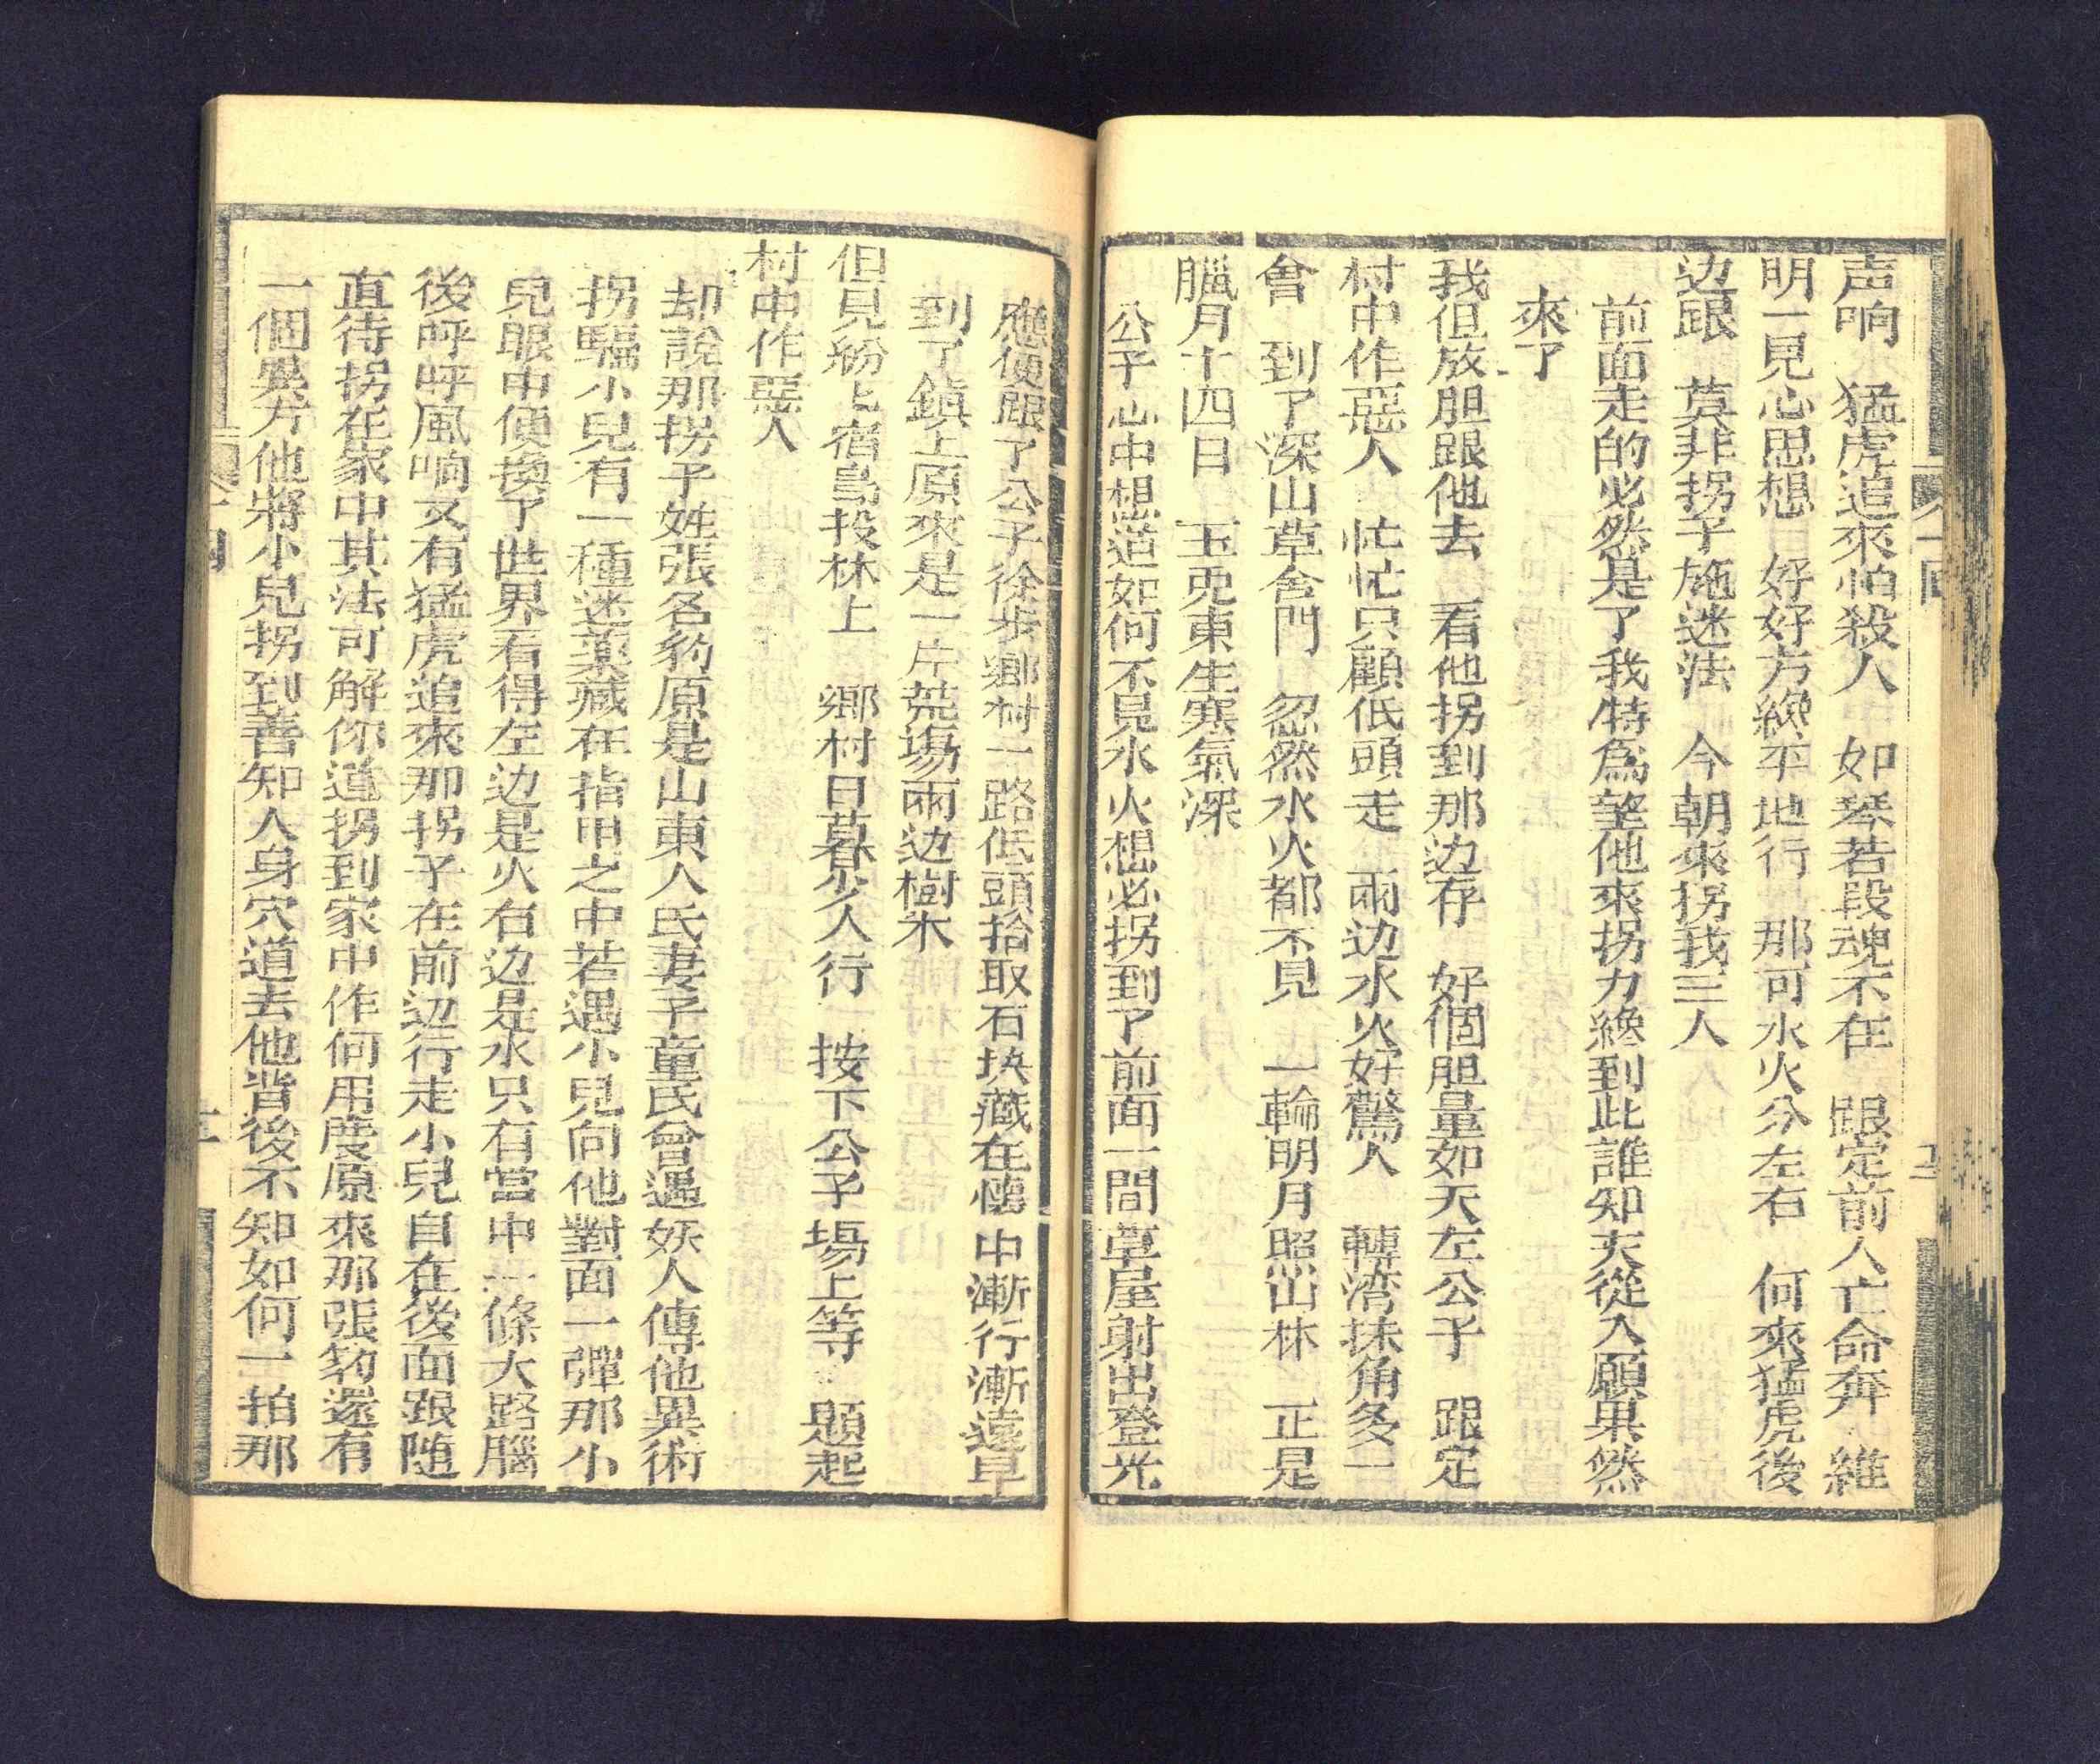 声响　猛虎追來怕殺人　如琴若段魂不在　跟定前人亡命奔　維
明一見心思想　好好方纔平地行　那可水火分左右　何來猛虎後
边跟　莫非拐子施迷法　今朝來拐我三人
前面走的必然是了我特爲望他來拐力纔到此誰知天從人願果然
來了
我但放胆跟他去　看他拐到那边存　好個胆量如天左公子　跟定
村中作惡人　忙忙只顧低頭走　兩边水火好驚人　轉湾抹角多一
會　到了深山草舍門　忽然水火都不見　一輪明月照山林　正是
臘月十四日　玉兎東生寒氣深
公子心中想道如何不見水火想必拐到了前面一間草屋射出登光
應便跟了公子徐步鄉村一路低頭拾取石块藏在懷中漸行漸遠早
到了鎮上原來是一片荒場兩边樹木
但見紛〻宿鳥投林上　鄉村日暮少人行　按下公子場上等　題起
村中作惡人
却說那拐子姓張名豹原是山東人氏妻子童氏曾遇妖人傳他異術
拐騙小兒有一種迷薬藏在指甲之中若遇小兒向他對面一彈那小
兒眼中便換了世界看得左边是火右边是水只有當中一條大路腦
後呼呼風响又有猛虎追來那拐子在前边行走小兒自在後面跟随
直待拐在家中其法可解你道拐到家中作何用度原來那張豹還有
一個異方他將小兒拐到善知人身穴道去他背後不知如何一拍那